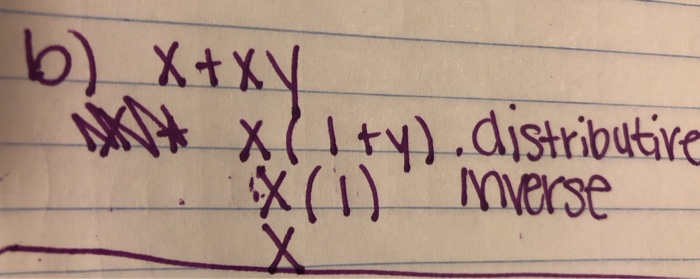 b) x + xy
x(1+y). distributive
x(1) inverse
x